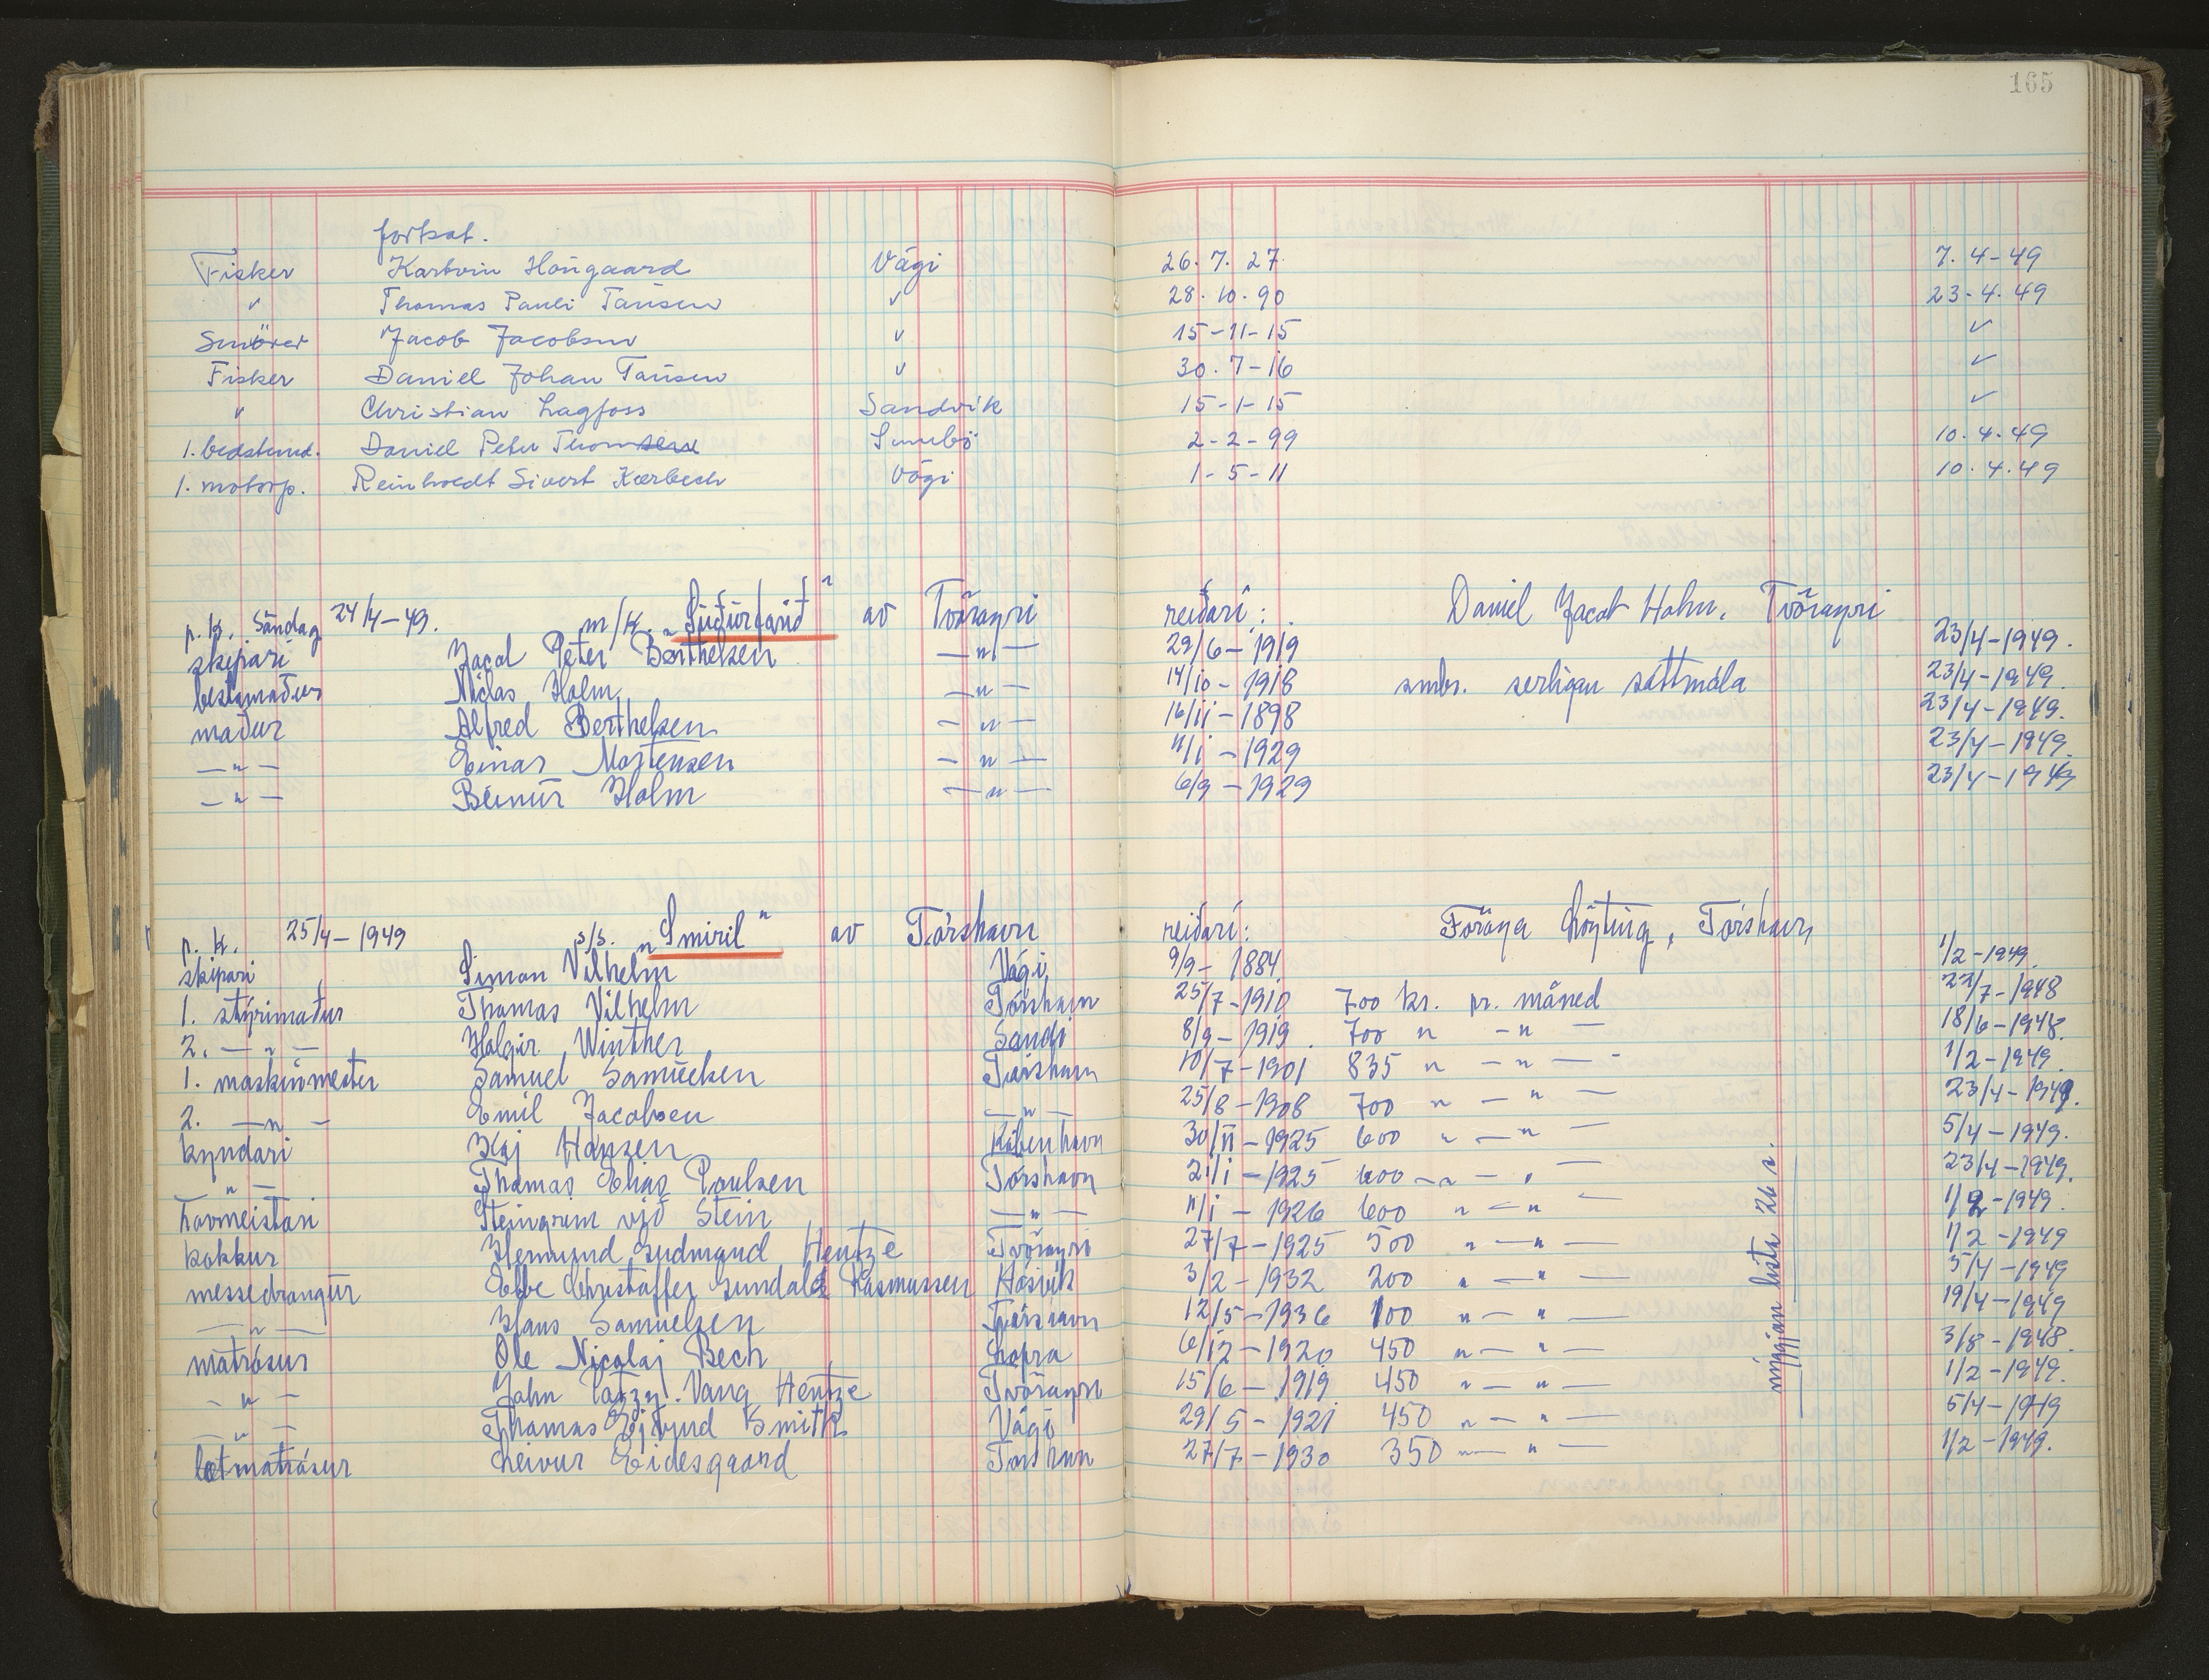 165
fortsat.
Fisker Karbvin Hougaard Vági 26. 7. 27. 7. 4-49
" Thomas Pauli Tausen " 28. 10. 90 23. 4. 49
Smörer Jacob Jacobsen " 15-11-15 "
Fisker Daniel Johan Tausen " 30. 7-16 "
" Christian Lagfoss Sandvík 15-1-15 "
1. bedstemd. Daniel Peter Thomsen Sumbö 2-2-99 10. 4. 49
1. motorp. Reinholdt Sivert Kærbech Vági 1-5-11 10. 4. 49
p. k. Sándag 24/4-49. m/k. „Suðurfarið" av Tvöroyri reiðarí: Daniel Jacob Holm, Tvöroyri
skipari Jacob Peter Berthelsen —"— 29/6-1919 23/4-1949.
bestemaður Niclas Holm —"— 14/10-1918 smbr. serligan sáttmála 23/4-1949.
maður Alfred Berthelsen —"— 16/11-1898 23/4-1949.
—"— Einar Mortensen —"— 11/1-1929 23/4-1949.
—"— Beinur Holm —"— 6/9-1929 23/4-1949
p. k. 25/4-1949 s/s. „Smiril" av Tórshavn reiðarí: Föroya Löyting, Tórshavn
skipari Simun Vilhelm Vági 9/9-1884 1/2-1949.
1. stýrimaður Thomas Vilhelm Tórshavn 25/7-1910 700 kr. pr. måned 22/7-1948
2. —"— Holgir Winther Sandi 8/9-1919. 700 " —"— 18/6-1948.
1. maskinmester Samuel Samuelsen Tórshavn 10/7-1901 835 " —"— 1/2-1949.
2. —"— Emil Jacobsen —"— 25/8-1908 700 " —"— 23/4-1949.
kyndari Kaj Hansen København 30/11-1925 600 " —"— 5/4-1949.
—"— Thomas Elias Poulsen Tórshavn 21/1-1925 600 " —"— 23/4-1949.
hovmeistari Steingrum við Stein —"— 11/1-1926 600 " —"— 1/2-1949.
kokkur Hemmund Gudmund Hentze Tvöroyri 27/7-1925 500 " —"— 1/2-1949
messedrongur Ebbe Christoffer Sundalz Rasmussen Hósvík 3/2-1932 200 " —"— 5/4-1949
—"— Hans Samuelsen Tórshavn 12/5-1936 100 " —"— 19/4-1949
matrósur Ole Nicolaj Bech Lopra 6/12-1920 450 " —"— 3/8-1948.
—"— John Vang Hentze Tvöroyri 15/6-1919 450 " —"— 1/2-1949.
—"— Thomas Ejvind Smith Vági 29/5-1921 450 " —"— 5/4-1949
letmatrósur Leivur Eidesgaard Tórshavn 27/7-1930 350 " —"— 1/2-1949.
nýggjan lista 26 s.